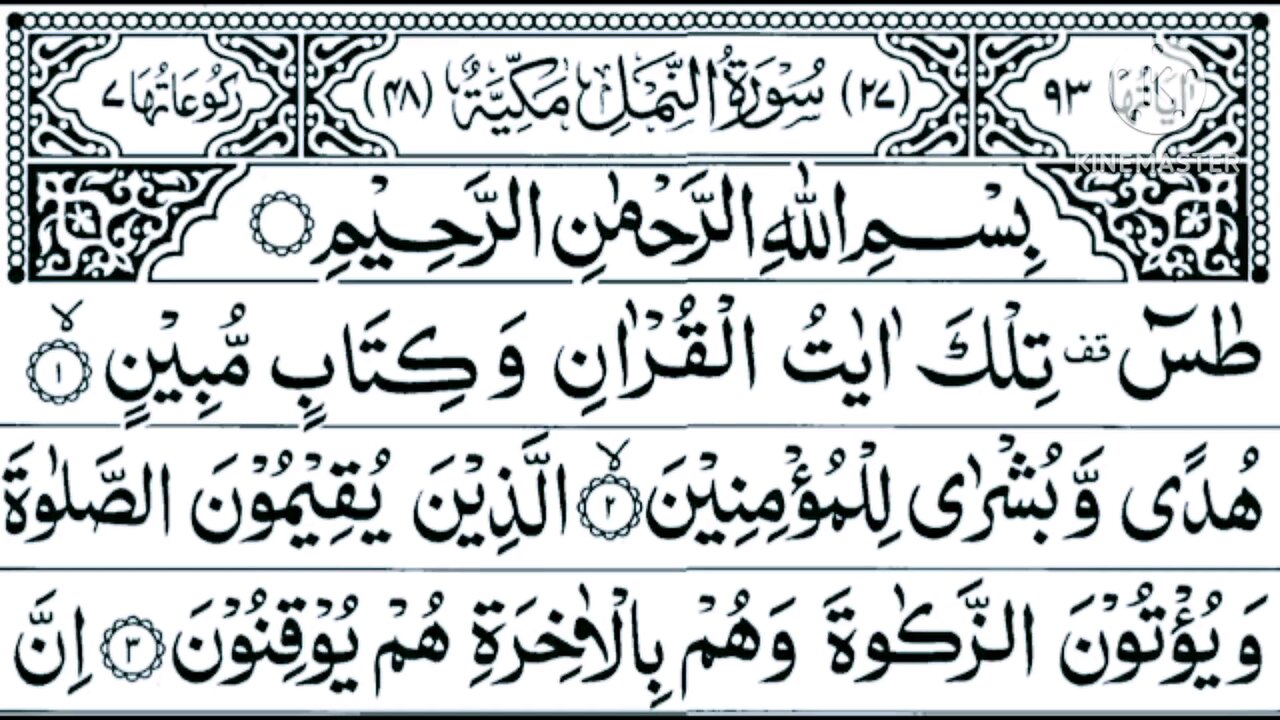 اٰیاتُهَا ٩٣ (٢٧) سُوْرَةُ النَّمْلِ مَكِّيَّةٌ (٤٨) رُكُوْعَاتُهَا ٧
KINEMASTER
بِسْمِ اللّٰهِ الرَّحْمٰنِ الرَّحِيْمِ
طٰسٓ قف تِلْكَ اٰيٰتُ الْقُرْاٰنِ وَ كِتَابٍ مُّبِيْنٍ ۙ ١
هُدًى وَّ بُشْرٰى لِلْمُؤْمِنِيْنَ ۙ ٢ الَّذِيْنَ يُقِيْمُوْنَ الصَّلٰوةَ
وَ يُؤْتُوْنَ الزَّكٰوةَ وَ هُمْ بِالْاٰخِرَةِ هُمْ يُوْقِنُوْنَ ٣ اِنَّ